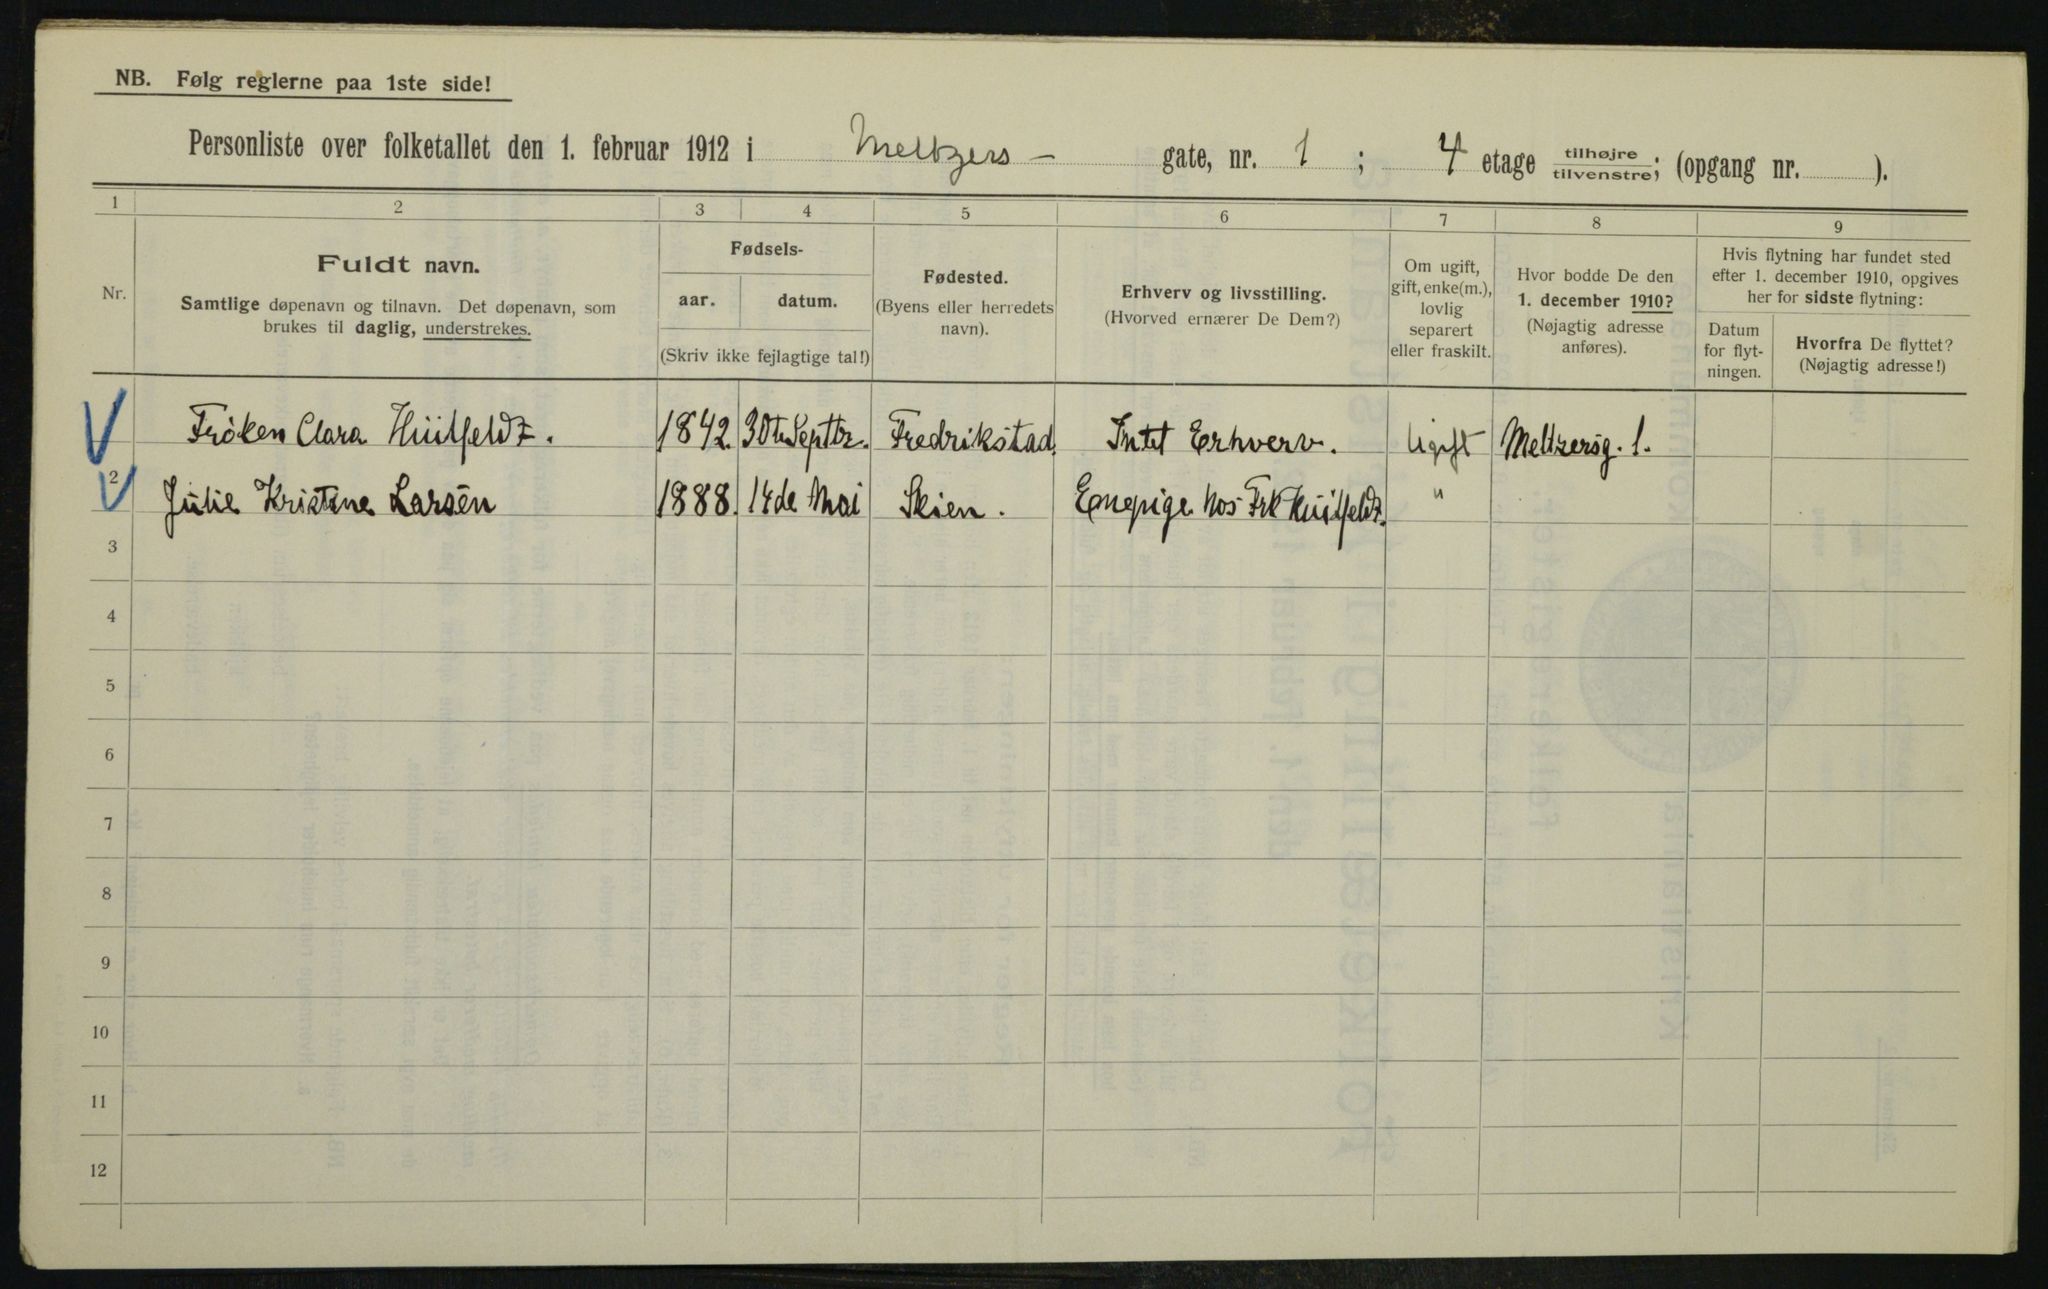 NB. Følg reglerne paa 1ste side!
Personliste over folketallet den 1. februar 1912 i Meltzers- gate, nr. 1 ; 4 etage tilhøjre tilvenstre; (opgang nr. ).
1 2 3 4 5 6 7 8 9
Nr.
Fuldt navn.
Samtlige døpenavn og tilnavn. Det døpenavn, som
brukes til daglig, understrekes.
Fødsels-
aar. datum.
(Skriv ikke fejlagtige tal!)
Fødested.
(Byens eller herredets
navn).
Erhverv og livsstilling.
(Hvorved ernærer De Dem?)
Om ugift,
gift, enke(m.),
lovlig
separert
eller fraskilt.
Hvor bodde De den
1. december 1910?
(Nøjagtig adresse
anføres).
Hvis flytning har fundet sted
efter 1. december 1910, opgives
her for sidste flytning:
Datum
for flyt-
ningen.
Hvorfra De flyttet?
(Nøjagtig adresse!)
Frøken Clara Huitfeldt. 1842. 30te Septbr. Fredrikstad. Intet Erhverv. Ugift Meltzersg. 1.
2 Julie Kristine Larsen 1888. 14de Mai Skien. Enepige hos Frk Huitfeldt. "
3
4
5
6
7
8
9
10
11
12